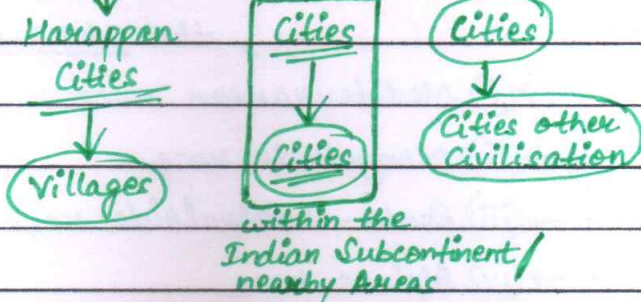 Harappan
Cities
Villages
Cities
Cities
within the
Indian Subcontinent/
nearby Areas
Cities
Cities other
Civilisation